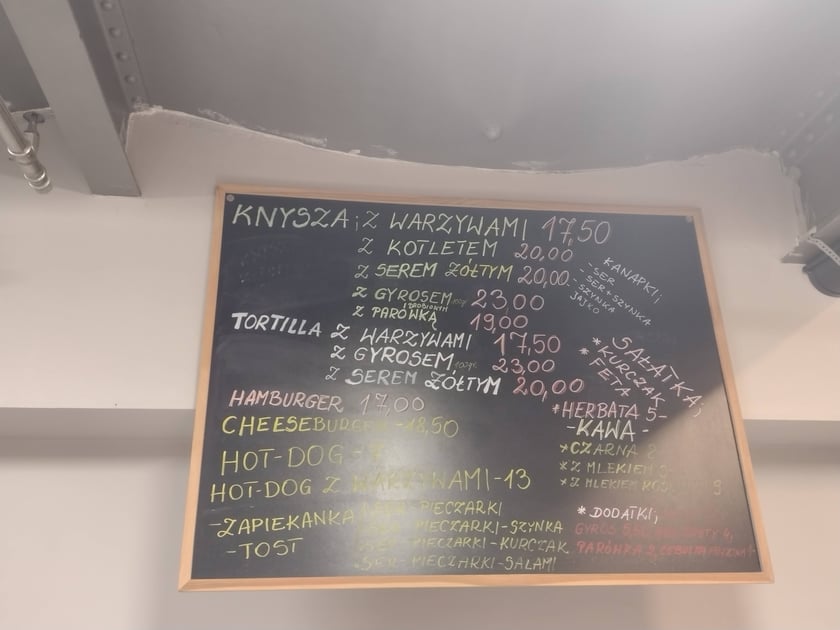 KNYSZA; Z WARZYWAMI 17,50
Z KOTLETEM 20,00
Z SEREM ŻÓŁTYM 20,00
Z GYROSEM 23,00
Z PARÓWKĄ 19,00
TORTILLA Z WARZYWAMI 17,50
Z GYROSEM 23,00
Z SEREM ŻÓŁTYM 20,00
HAMBURGER 17,00
CHEESEBURGER -18,50
HOT-DOG - 7
HOT-DOG Z WARZYWAMI-13
-ZAPIEKANKA
-TOST
SER - PIECZARKI
SER - PIECZARKI-SZYNKA
SER - PIECZARKI -KURCZAK
SER - PIECZARKI -SALAMI
KANAPKI;
- SER
- SER+SZYNKA
- SZYNKA
JAJKO
SAŁATKA;
* KURCZAK
* FETA
*HERBATA 5-
-KAWA-
*CZARNA 8
*Z MLEKIEM
*Z MLEKIEM
* DODATKI;
GYROS
PARÓWKA 2, CEBULA